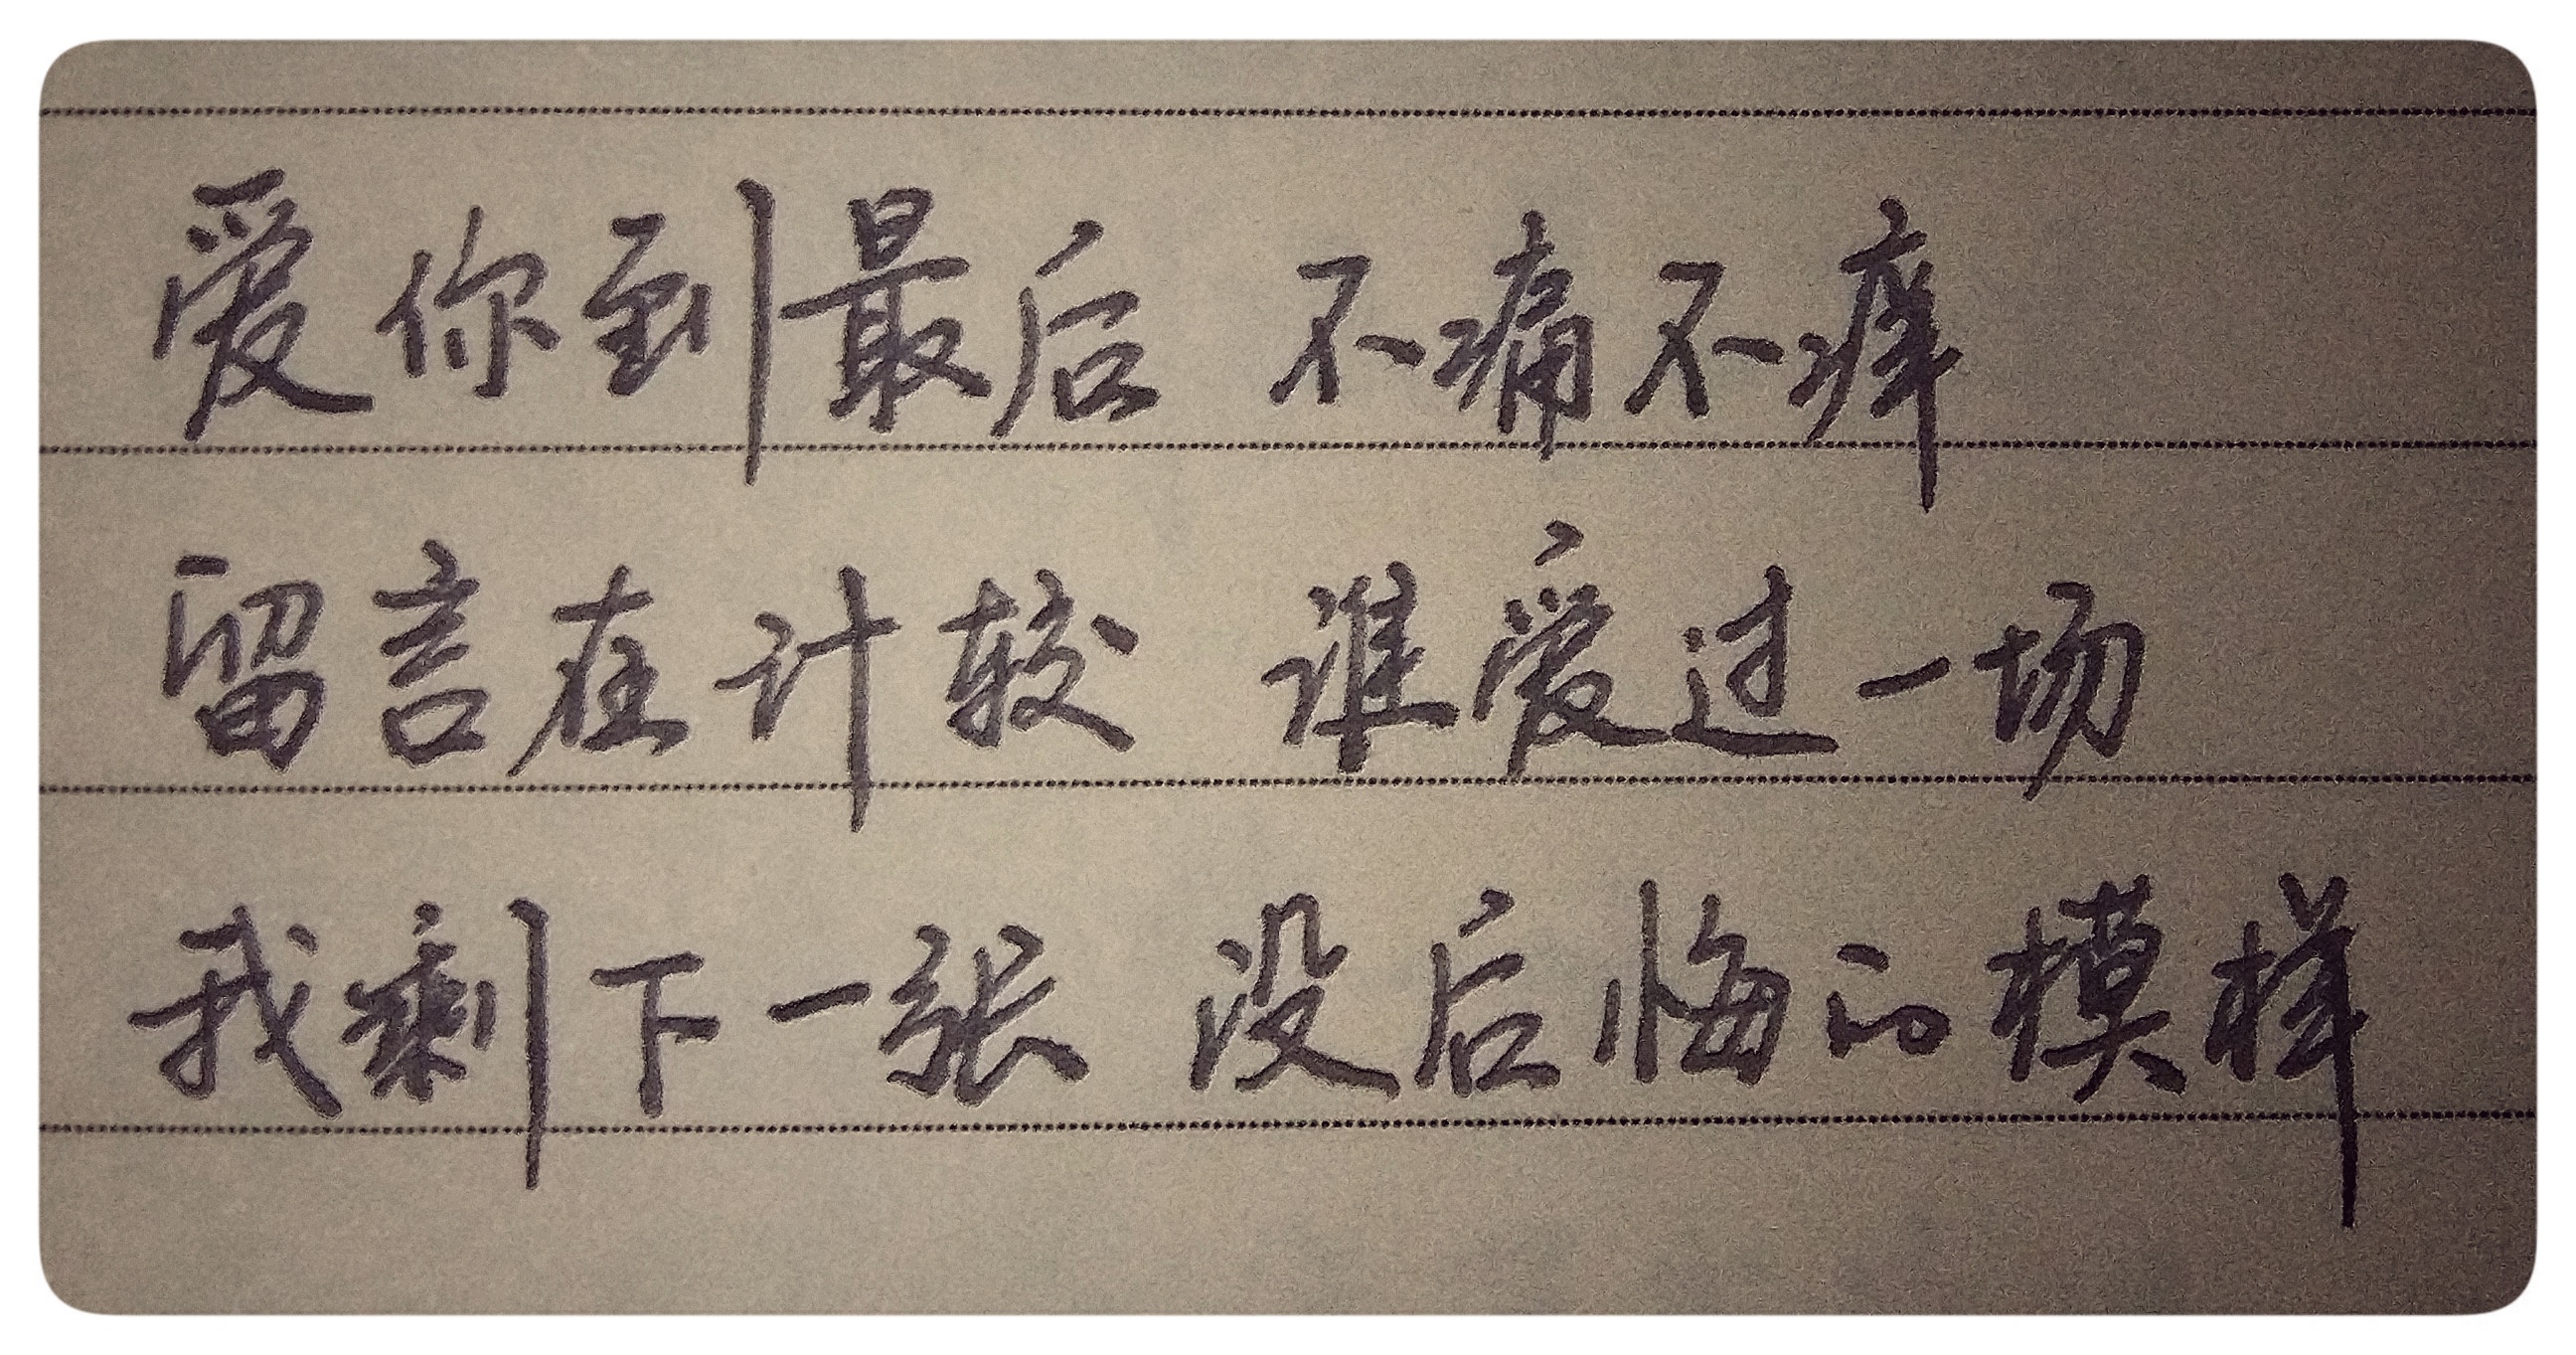 爱你到最后 不痛不痒
留言在计较 谁爱过一场
我剩下一张 没后悔的模样